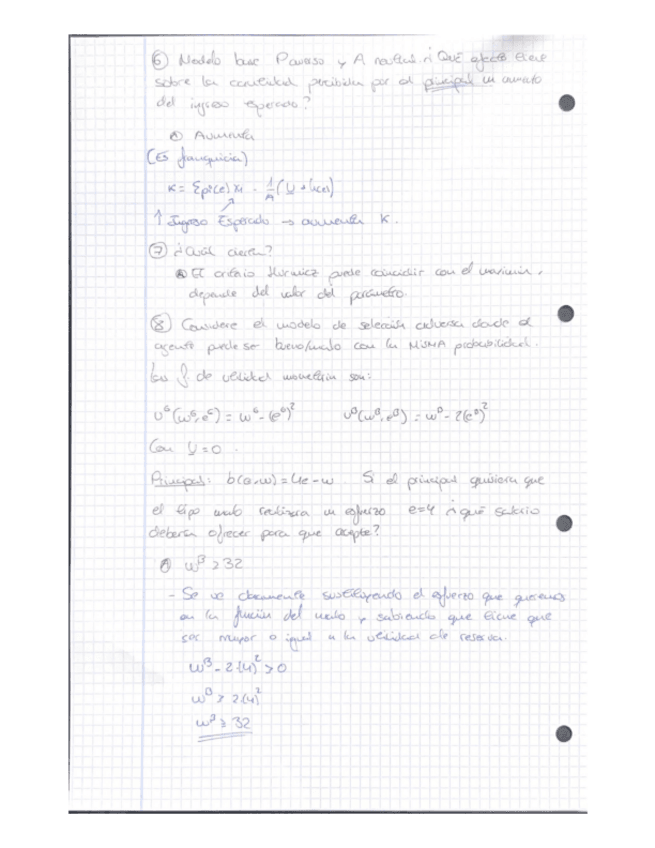 ⑥ Modelo base P averso y A neutral. ¿Qué efecto tiene
sobre la cantidad percibida por el principal un aumento
del ingreso esperado?
ⓐ Aumenta
(Es franquicia)
K = Σpi(e)xi - 1/A (U + v(e))
↑ Ingreso Esperado → aumenta K.
⑦ ¿Cuál cierta?
ⓐ El criterio Hurwicz puede coincidir con el maximin,
depende del valor del parámetro.
⑧ Considere el modelo de selección adversa donde el
agente puede ser bueno/malo con la MISMA probabilidad.
Las f. de utilidad monetaria son:
U^G(w^G, e^G) = w^G - (e^G)^2 U^B(w^B, e^B) = w^B - 2(e^B)^2
Con U = 0.
Principal: b(e,w) = 4e - w. Si el principal quisiera que
el tipo malo realizara un esfuerzo e=4 ¿qué salario
debería ofrecer para que acepte?
ⓐ w^B ≥ 32
- Se ve claramente sustituyendo el esfuerzo que queremos
en la función del malo y sabiendo que tiene que
ser mayor o igual a la utilidad de reserva.
w^B - 2(4)^2 ≥ 0
w^B ≥ 2(4)^2
w^B ≥ 32